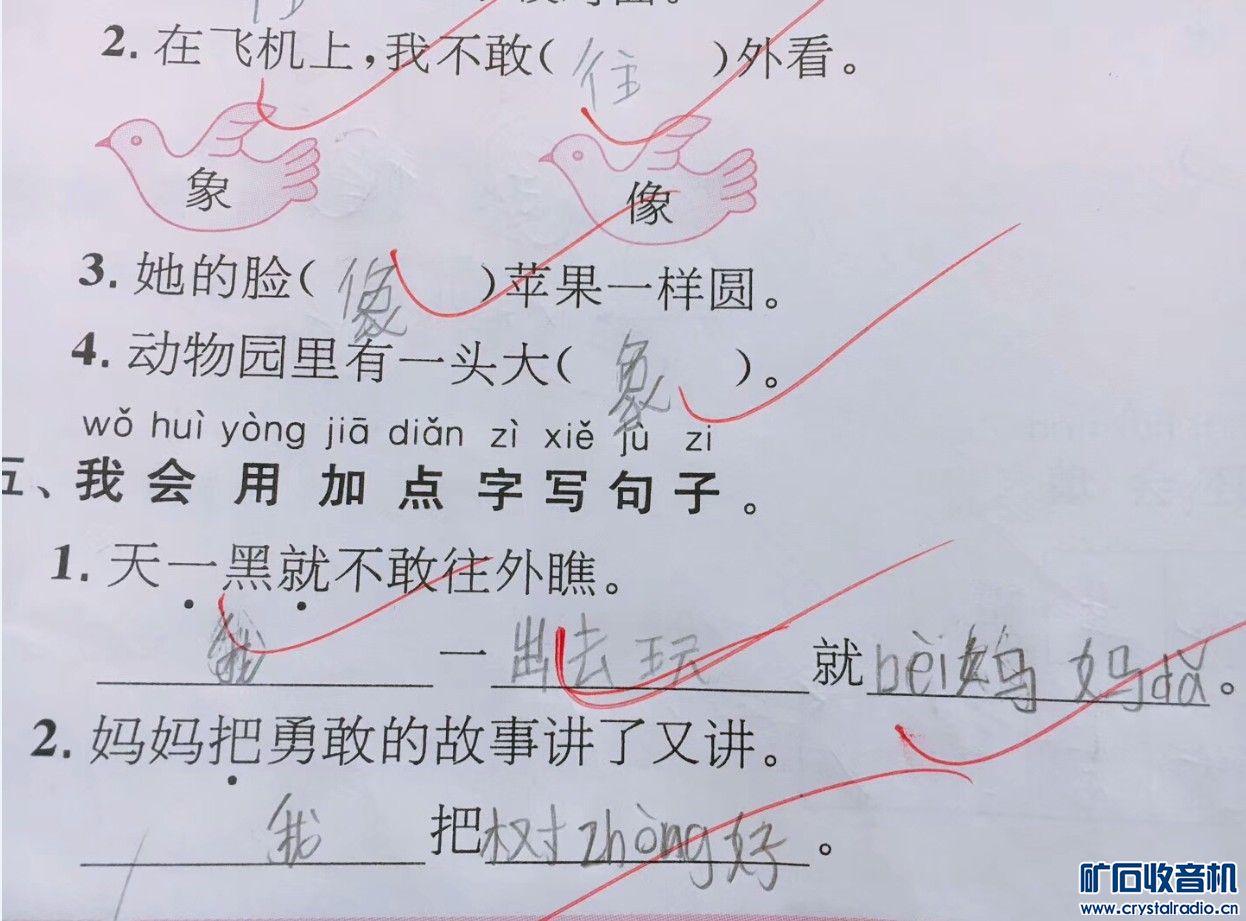 2. 在飞机上，我不敢（ 往 ）外看。
象 像
3. 她的脸（ 像 ）苹果一样圆。
4. 动物园里有一头大（ 象 ）。
wǒ huì yòng jiā diǎn zì xiě jù zi
五、我会用加点字写句子。
1. 天一黑就不敢往外瞧。
我 一 出去玩 就 bèi妈妈dǎ。
2. 妈妈把勇敢的故事讲了又讲。
我 把树zhòng好。
矿石收音机
www.crystalradio.cn